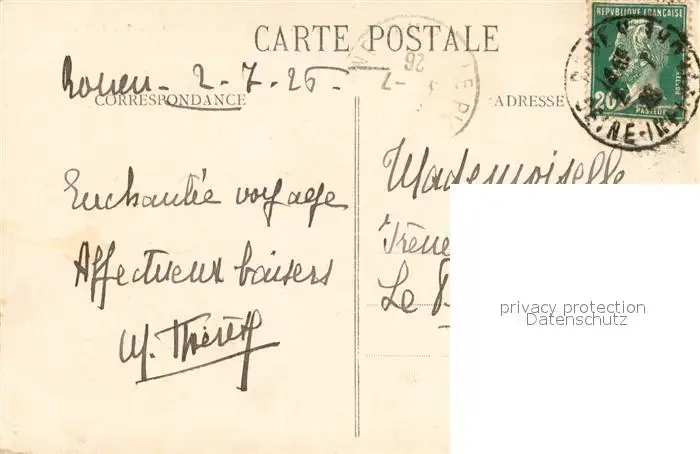 CARTE POSTALE
Rouen - 2-7-26-
CORRESPONDANCE
ADRESSE
REPUBLIQUE FRANÇAISE
20
POSTES
PASTEUR
26
Enchantée voyage
Affectueux baisers
M. Thérèse
Mademoiselle
Irène
Le
privacy protection
Datenschutz